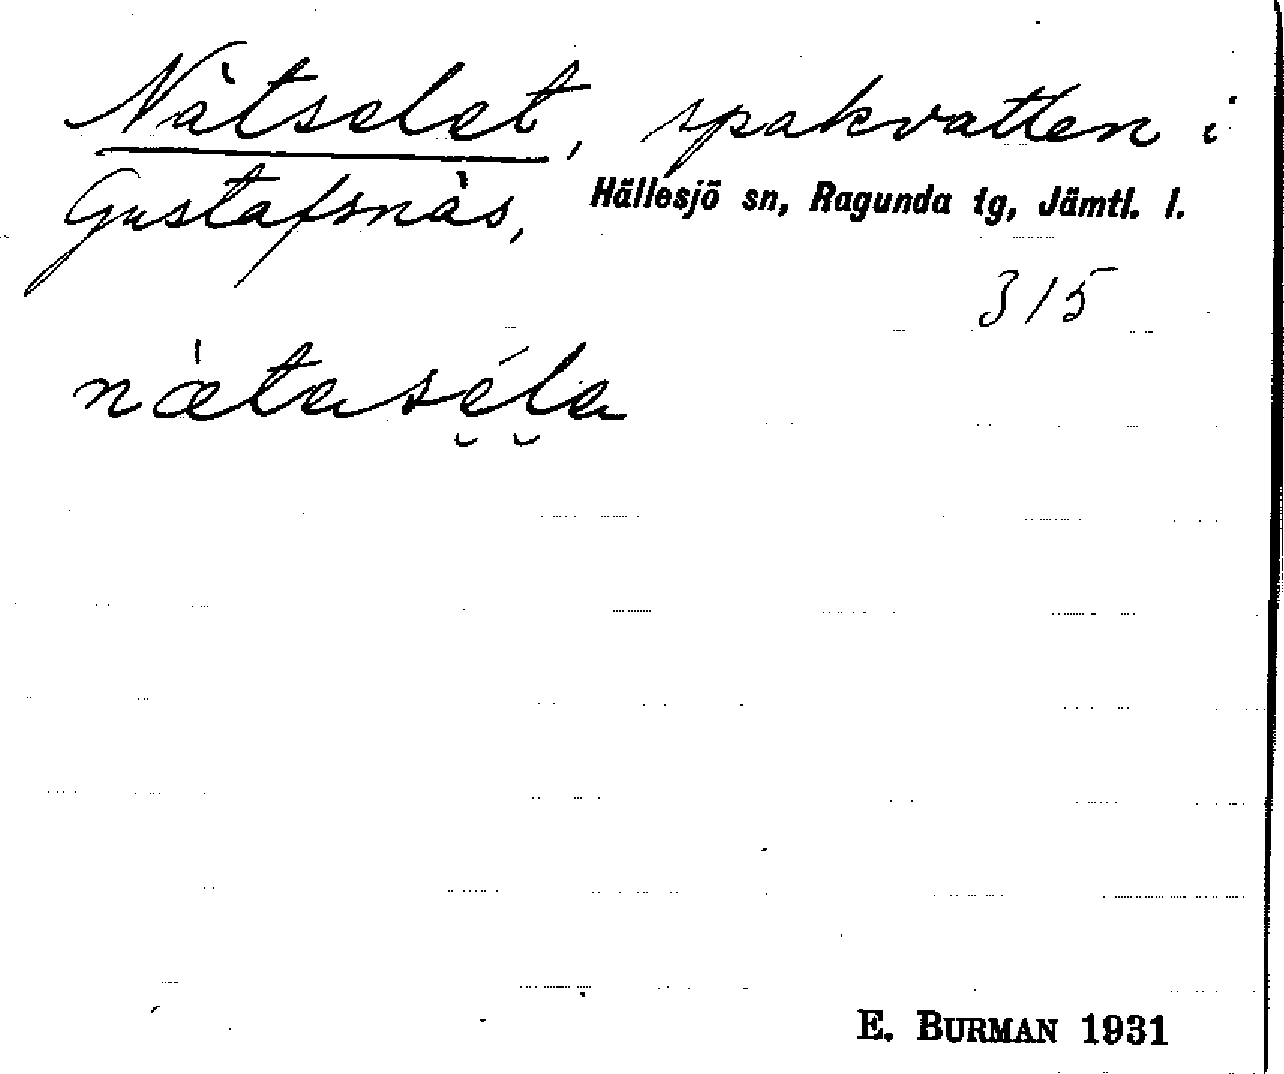 Nätselet, spakvatten i
Gustafsnäs, Hällesjö sn, Ragunda tg, Jämtl. l.
315
nætaséla
E. BURMAN 1931